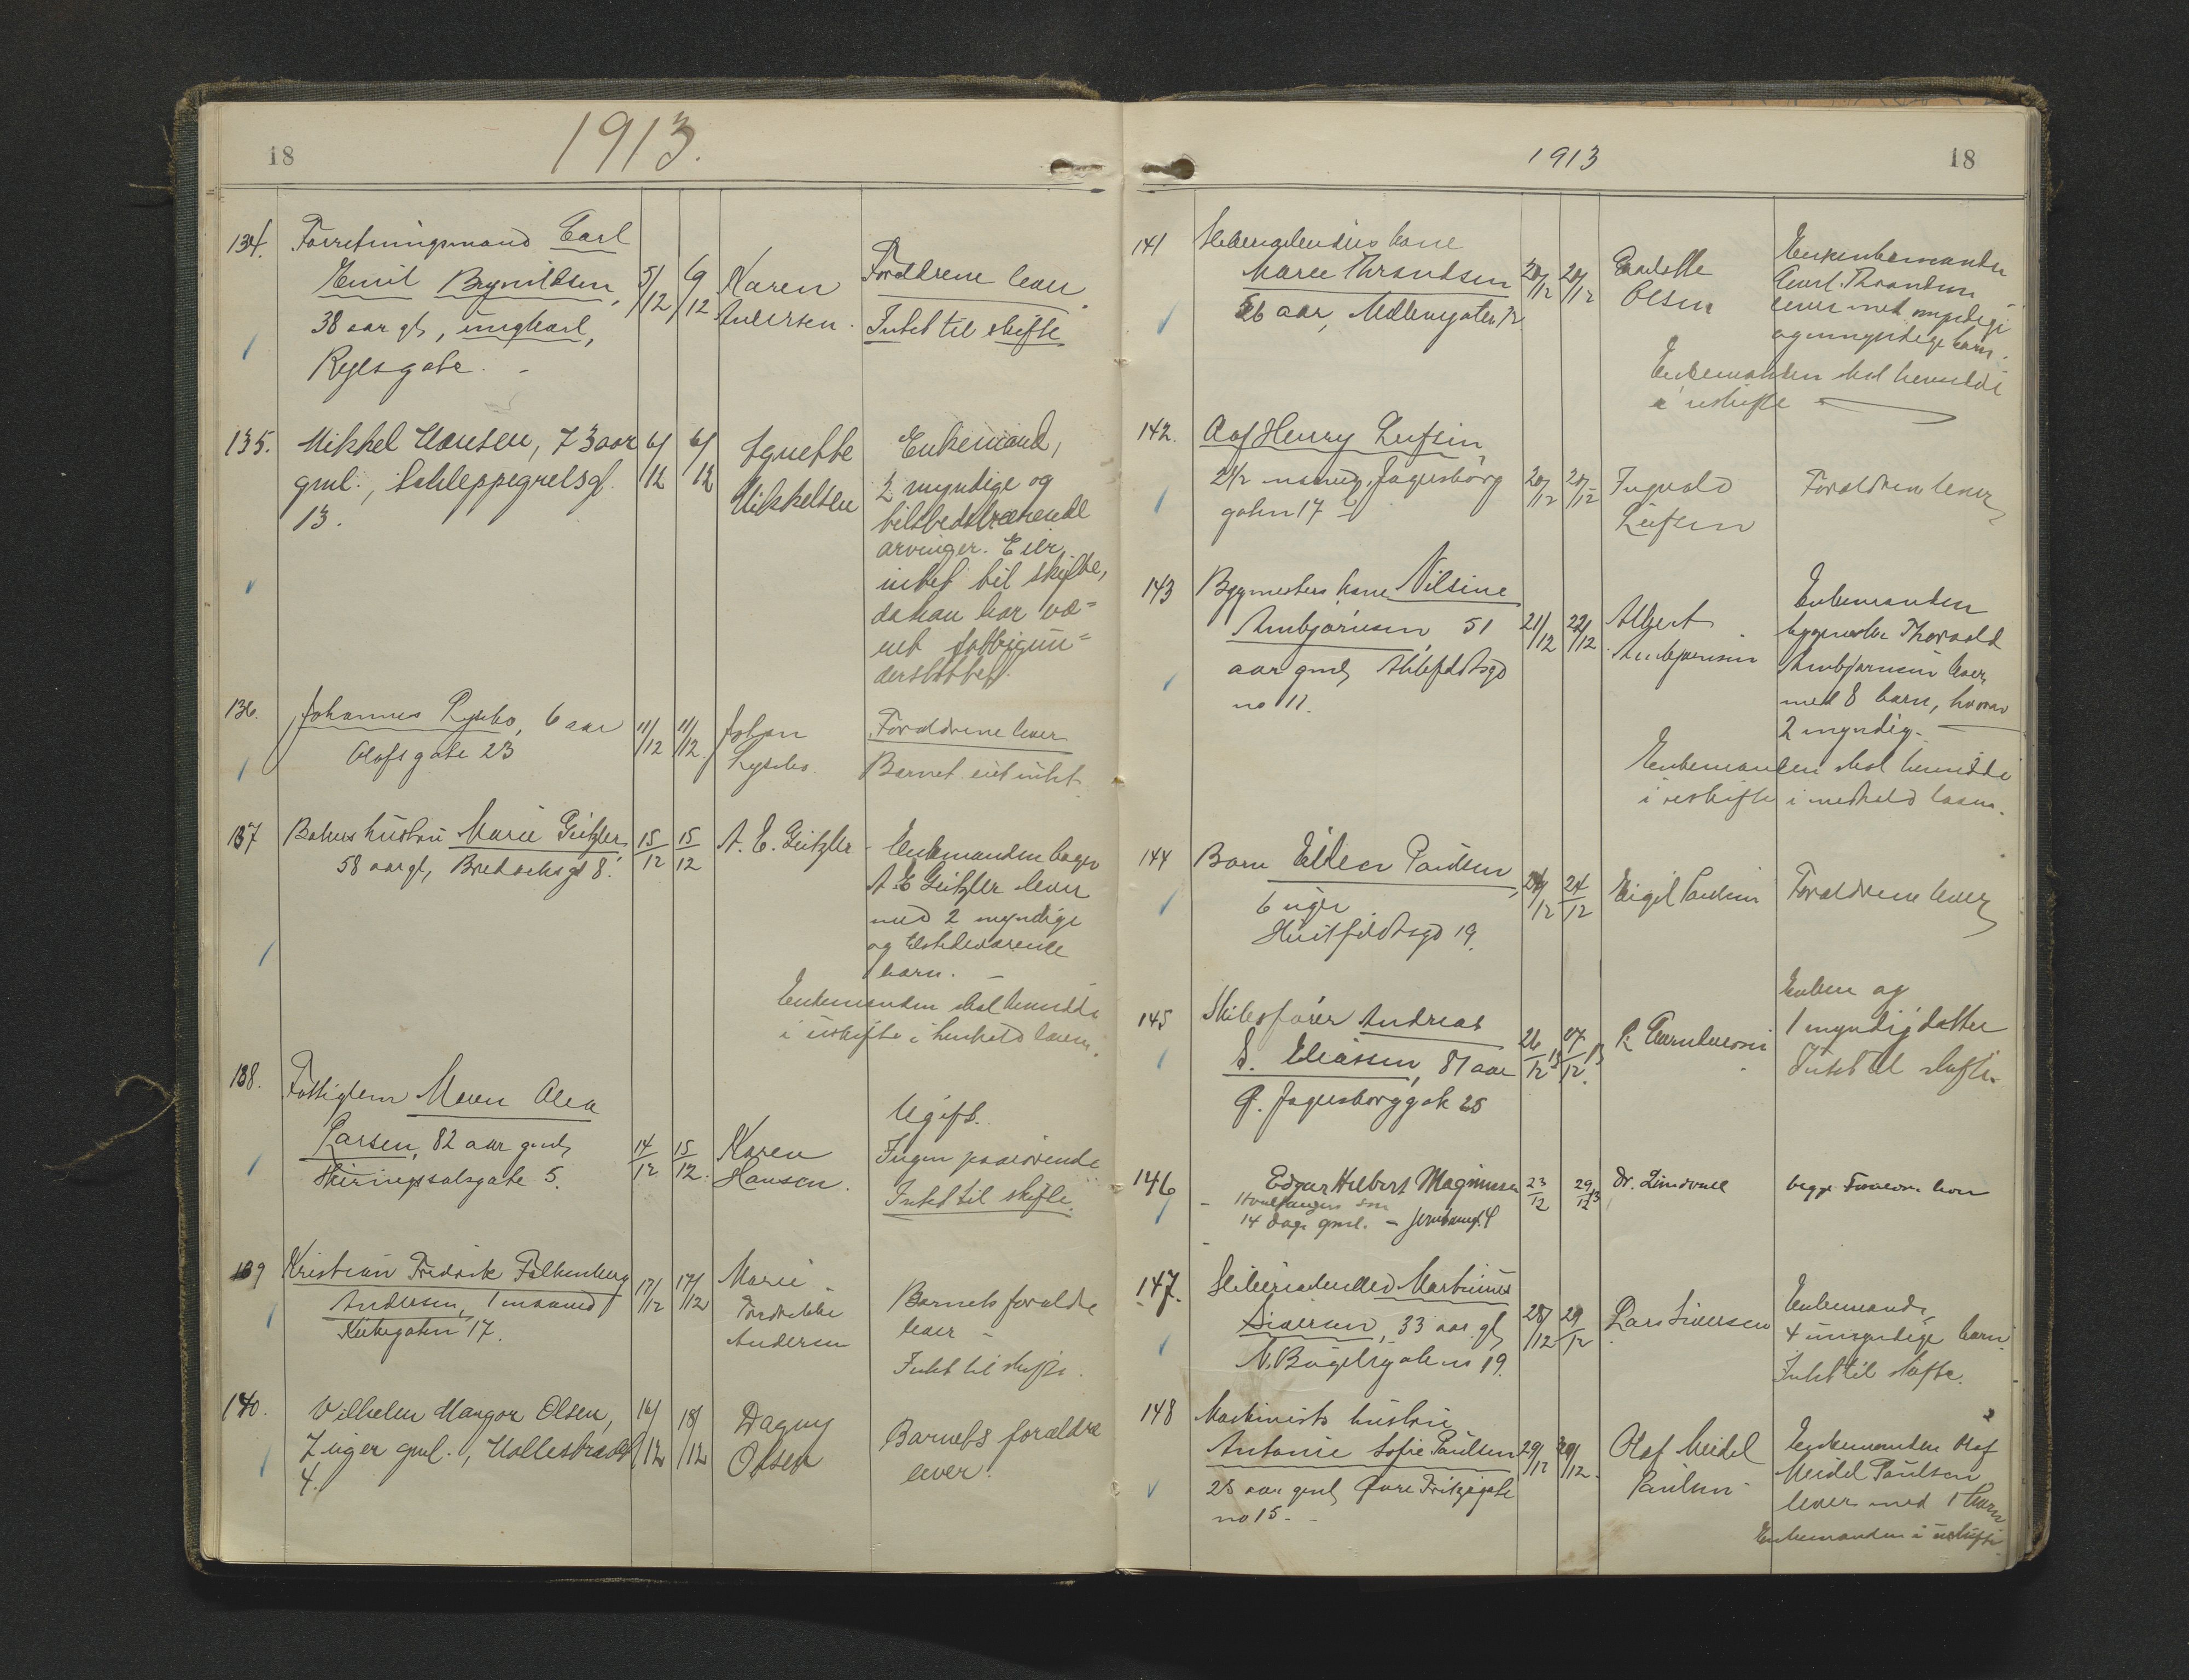 18
1913.
134.
Forretningsmand Carl
Emil Brynildsen,
38 aar gl, ungkarl,
Ryesgate.
5/12
6/12
Karen
Andersen.
Forældrene lever
Intet til skifte
135.
Mikkel Hansen, 73 aar
gml., Schleppegrelsgt.
13.
6/12
6/12
Agnethe
Mikkelsen
Enkemand,
2 myndige og
tilstedeværende
arvinger. Eier
intet til skifte,
da han har væ=
ret fattigun=
derstøttet.
136.
Johannes Lysebo, 6 aar
Olafsgate 23
11/12
11/12.
Johan
Lysebo.
Forældrene lever
Barnet eiet intet
137
Bakers hustru Marie Geitzler
58 aar gl, Bredochsgt 8.
15/12
15/12
A. E. Geitzler
Enkemanden bager
A E Geitzler lever
med 2 myndige
og tilstedeværende
barn.
Enkemanden skal hensidde
i uskifte i henhold loven.
138.
Fattiglem Maren Olea
Larsen, 82 aar gml,
Skiringssalsgate 5.
14/12
15/12.
Karen
Hansen.
Ugift.
Ingen paarørende
Intet til skifte.
139
Kristian Fredrik Falkenberg
Andersen, 1 maaned
Kirkegaten 17.
17/12
17/12
Marie
Fredrikke
Andersen
Barnets forældre
lever
Intet til skifte.
140.
Vilhelm Mangor Olsen,
7 uger gml.,
4.
16/12
18/12
Dagny
Olsen
Barnets forældre
lever.
1913
18
141
kone
Maren Thrandsen
56 aar, Møllergaten 12
20/12
20/12
Olsen
Enkemanden
Thrandsen
lever med myndige
og umyndige barn.
Enkemanden skal hensidde
i uskifte
142.
Aof Henry Leifsen,
2 1/2 maaned, Jegersborg
gaten 17
20/12
20/12
Ingvald
Leifsen
Forældrene lever
143
Bygmesters kone Nilsine
Arnbjørnsen, 51
aar gml,
no 11.
21/12
22/12
Albert
Arnbjørnsen
Enkemanden
bygmester Thorvald
Arnbjørnsen lever
med 8 barn, hvorav
2 myndig.
Enkemanden skal hensidde
i uskifte i medhold loven.
144
Barn Eilden Paulsen,
6 uger
Huitfeldtsgd 19.
24/12
24/12
Eigil Paulsen
Forældrene lever
145
Skibsfører Andreas
S. Eliassen, 87 aar
G. Jegersborggate 25
26/12 13
27/12. 13
Enken og
1 myndig datter
Intet til skifte.
146
Edgar Helbert Magnussen
Hvalfangers søn
14 dage gml. -
23/12
29/12 13
Dr. Lindvall
begge Forældre lever
147.
Martinius
Siversen, 33 aar gl,
N. Bugelsgate no 19.
28/12
29/12
Lars Siversen
Enkemand,
4 umyndige barn
Intet til skifte.
148
Maskinists hustru
Antonie Sofie Paulsen
25 aar gml, Øvre Fritzøgate
no 15.
29/12
30/12.
Olaf Meidel
Paulsen
Enkemanden Olaf
Meidel Paulsen
lever med 1 barn
Enkemanden i uskifte.